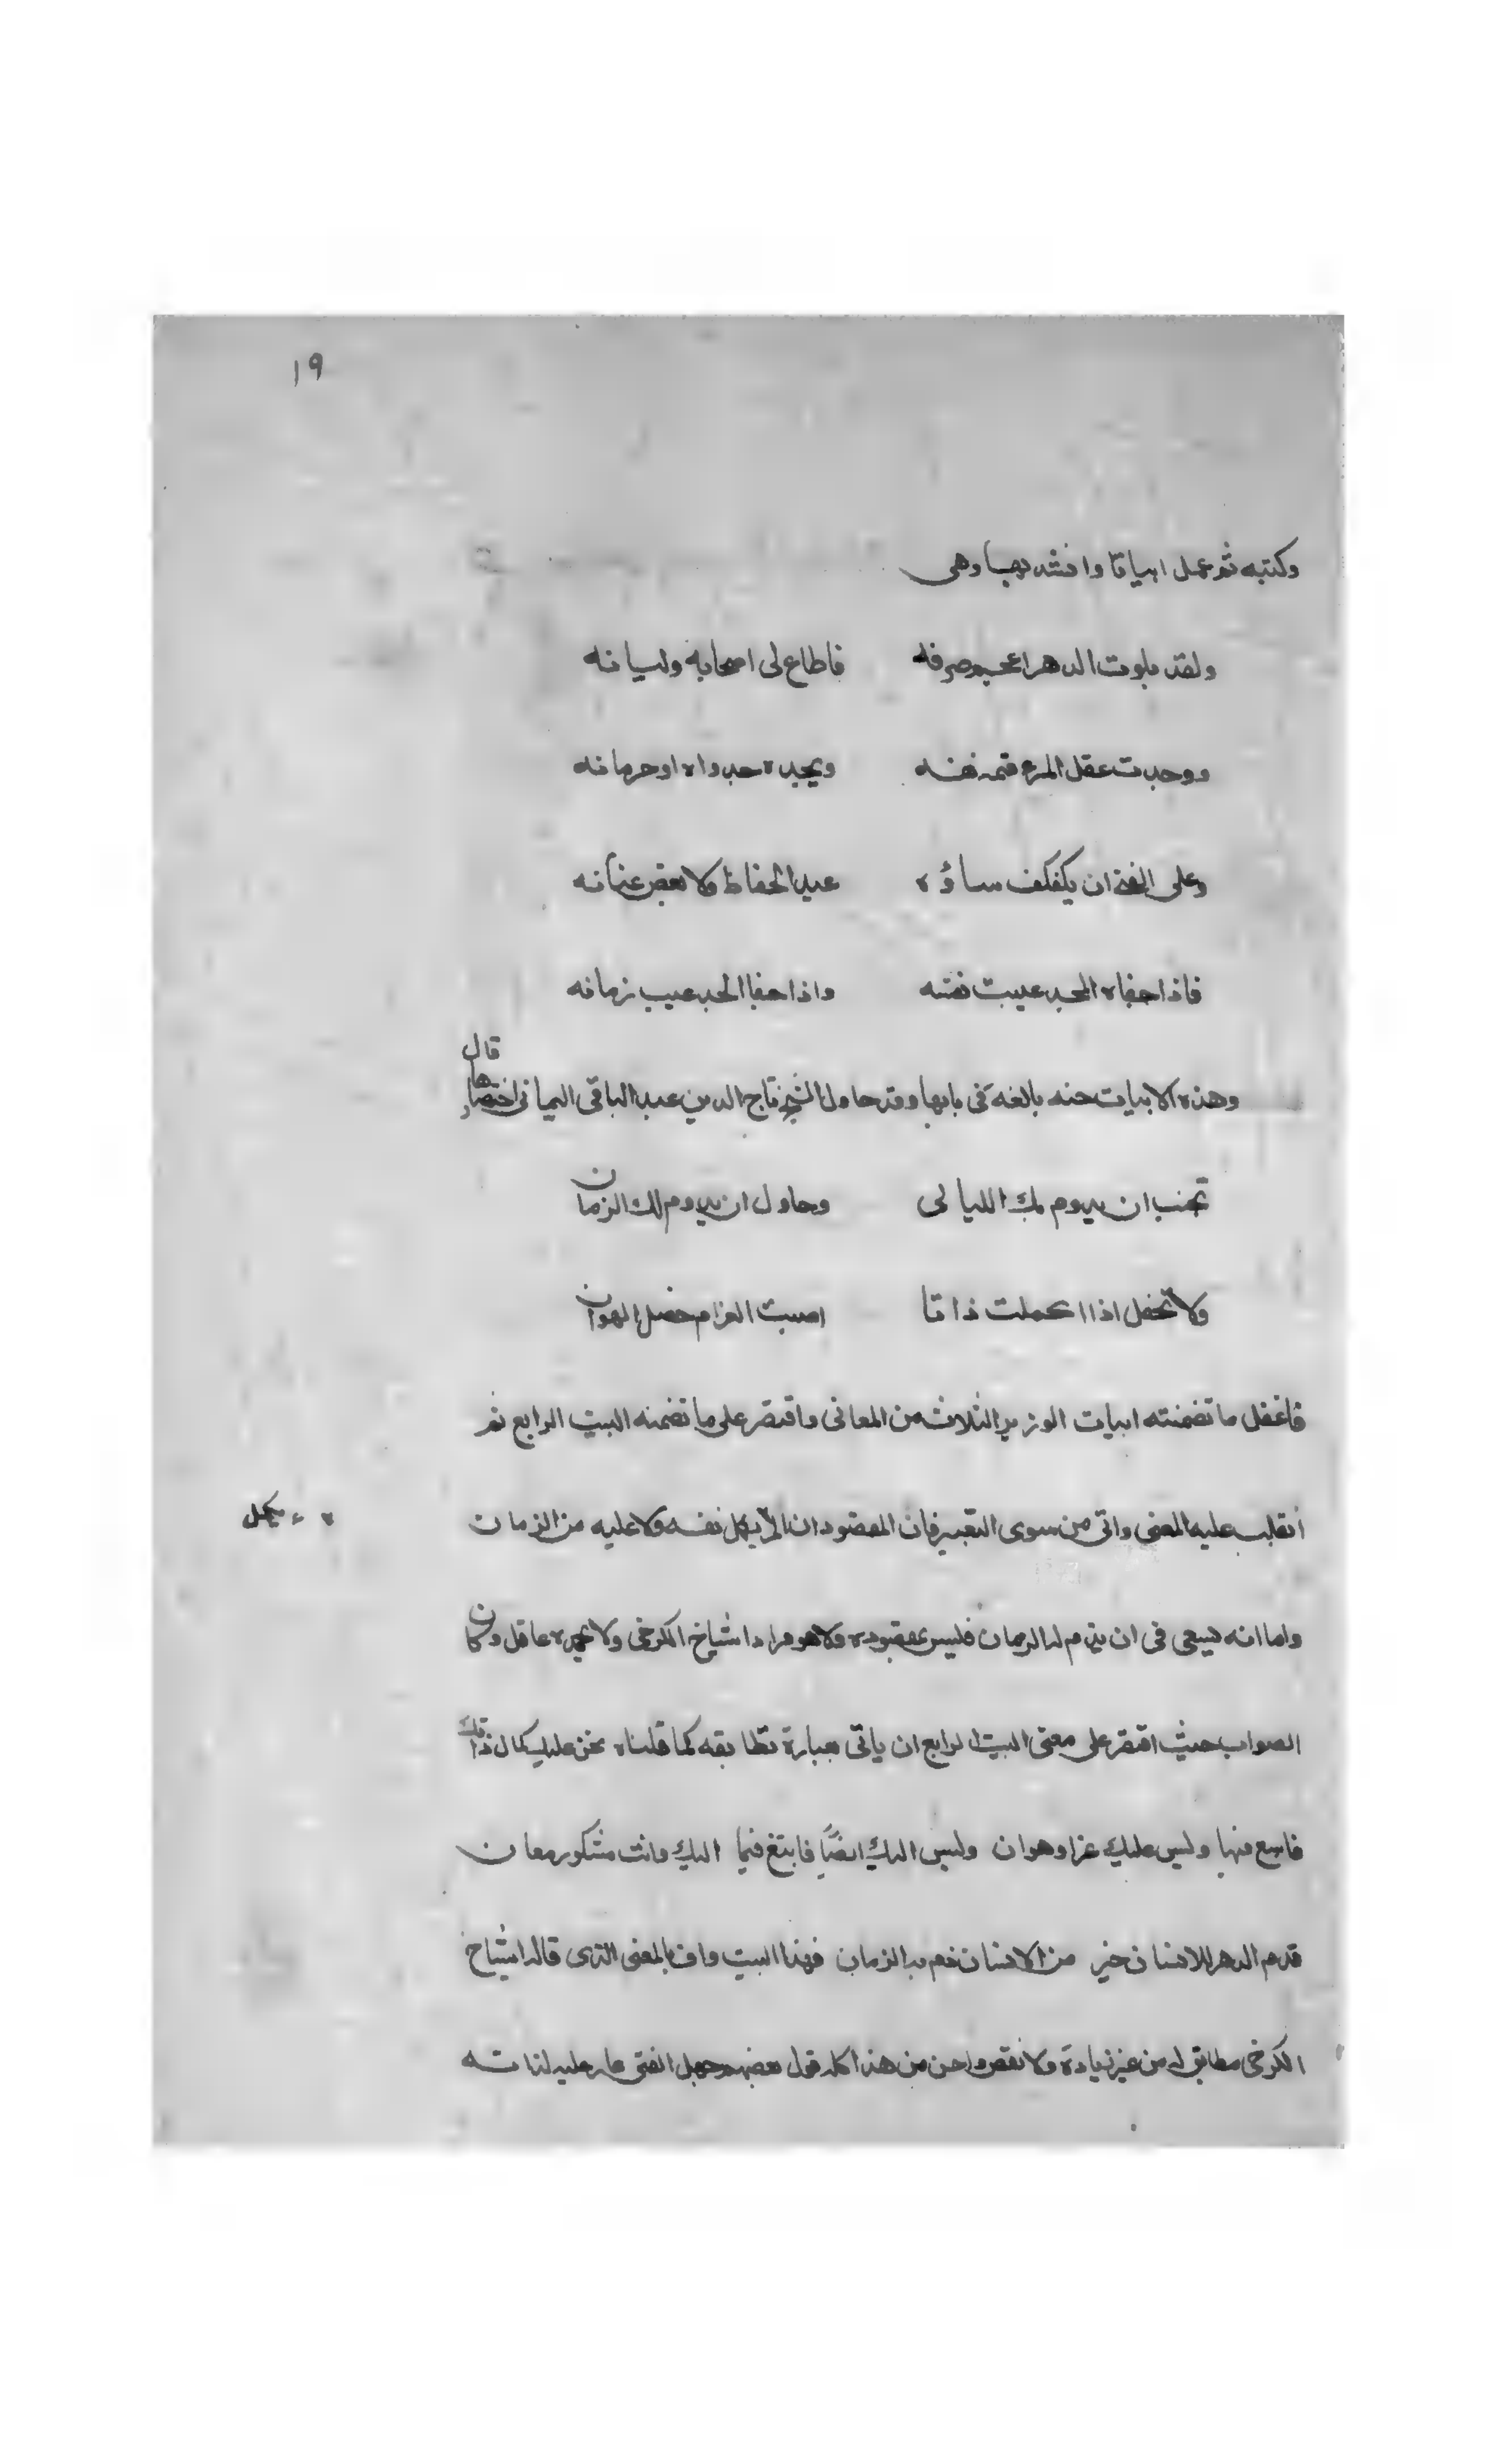 ١٩
وكتبه ثم عمل ابياتا وانشد بها وهى
ولقد بلوت الدهر اعجم صرفه فاطاع لى اصحابه ولسانه
ووجدت عقل المرء قيمة نفسه وبجده جدواه او حرمانه
وعلى الفتى ان يكفكف ساؤه عند الحفاظ ولا يغض عنانه
فاذا جفاه المجد عيبت نفسه واذا جفا الجد عيب زمانه
وهذه الابيات حسنه بالغة فى بابها وقد حاول الشيخ تاج الدين عبد الباقى اليمانى اختصارها قال
تجنب ان يدوم بك الليالى وحاول ان يدوم لك الزمان
ولا تحفل اذا اكملت ذاتا اصبت العزام حصل الهوان
فاغفل ما تضمنته ابيات الوزير الثلاث من المعانى واقتصر على ما تضمنه البيت الرابع ثم
انقلب عليه المعنى واتى من سوى التعبير فان المقصود ان المرء يكمل نفسه ولا عليه من الزمان
يكمل
واما انه يسعى فى ان يذم له الزمان فليس بمقصوده ولا هو مراد اشياخ الكرخى ولا يحمده عاقل وكان
الصواب حيث اقتصر على معنى البيت الرابع ان ياتى بعبارة تطابقه كما قلناه نحن عليك كمال ذاتك
فاسع فيها وليس عليك عز او هوان وليس اليك ايضًا فابتغ فيما اليك وانت مشكور معان
فذم الدهر للانسان خير من الانسان ذم به الزمان فهذا البيت واف بالمعنى الذى قاله اشياخ
الكرخى مطابق له من غير زيادة ولا نقص واحسن من هذا كله قول بعضهم جهل الفتى عار عليه لذاته